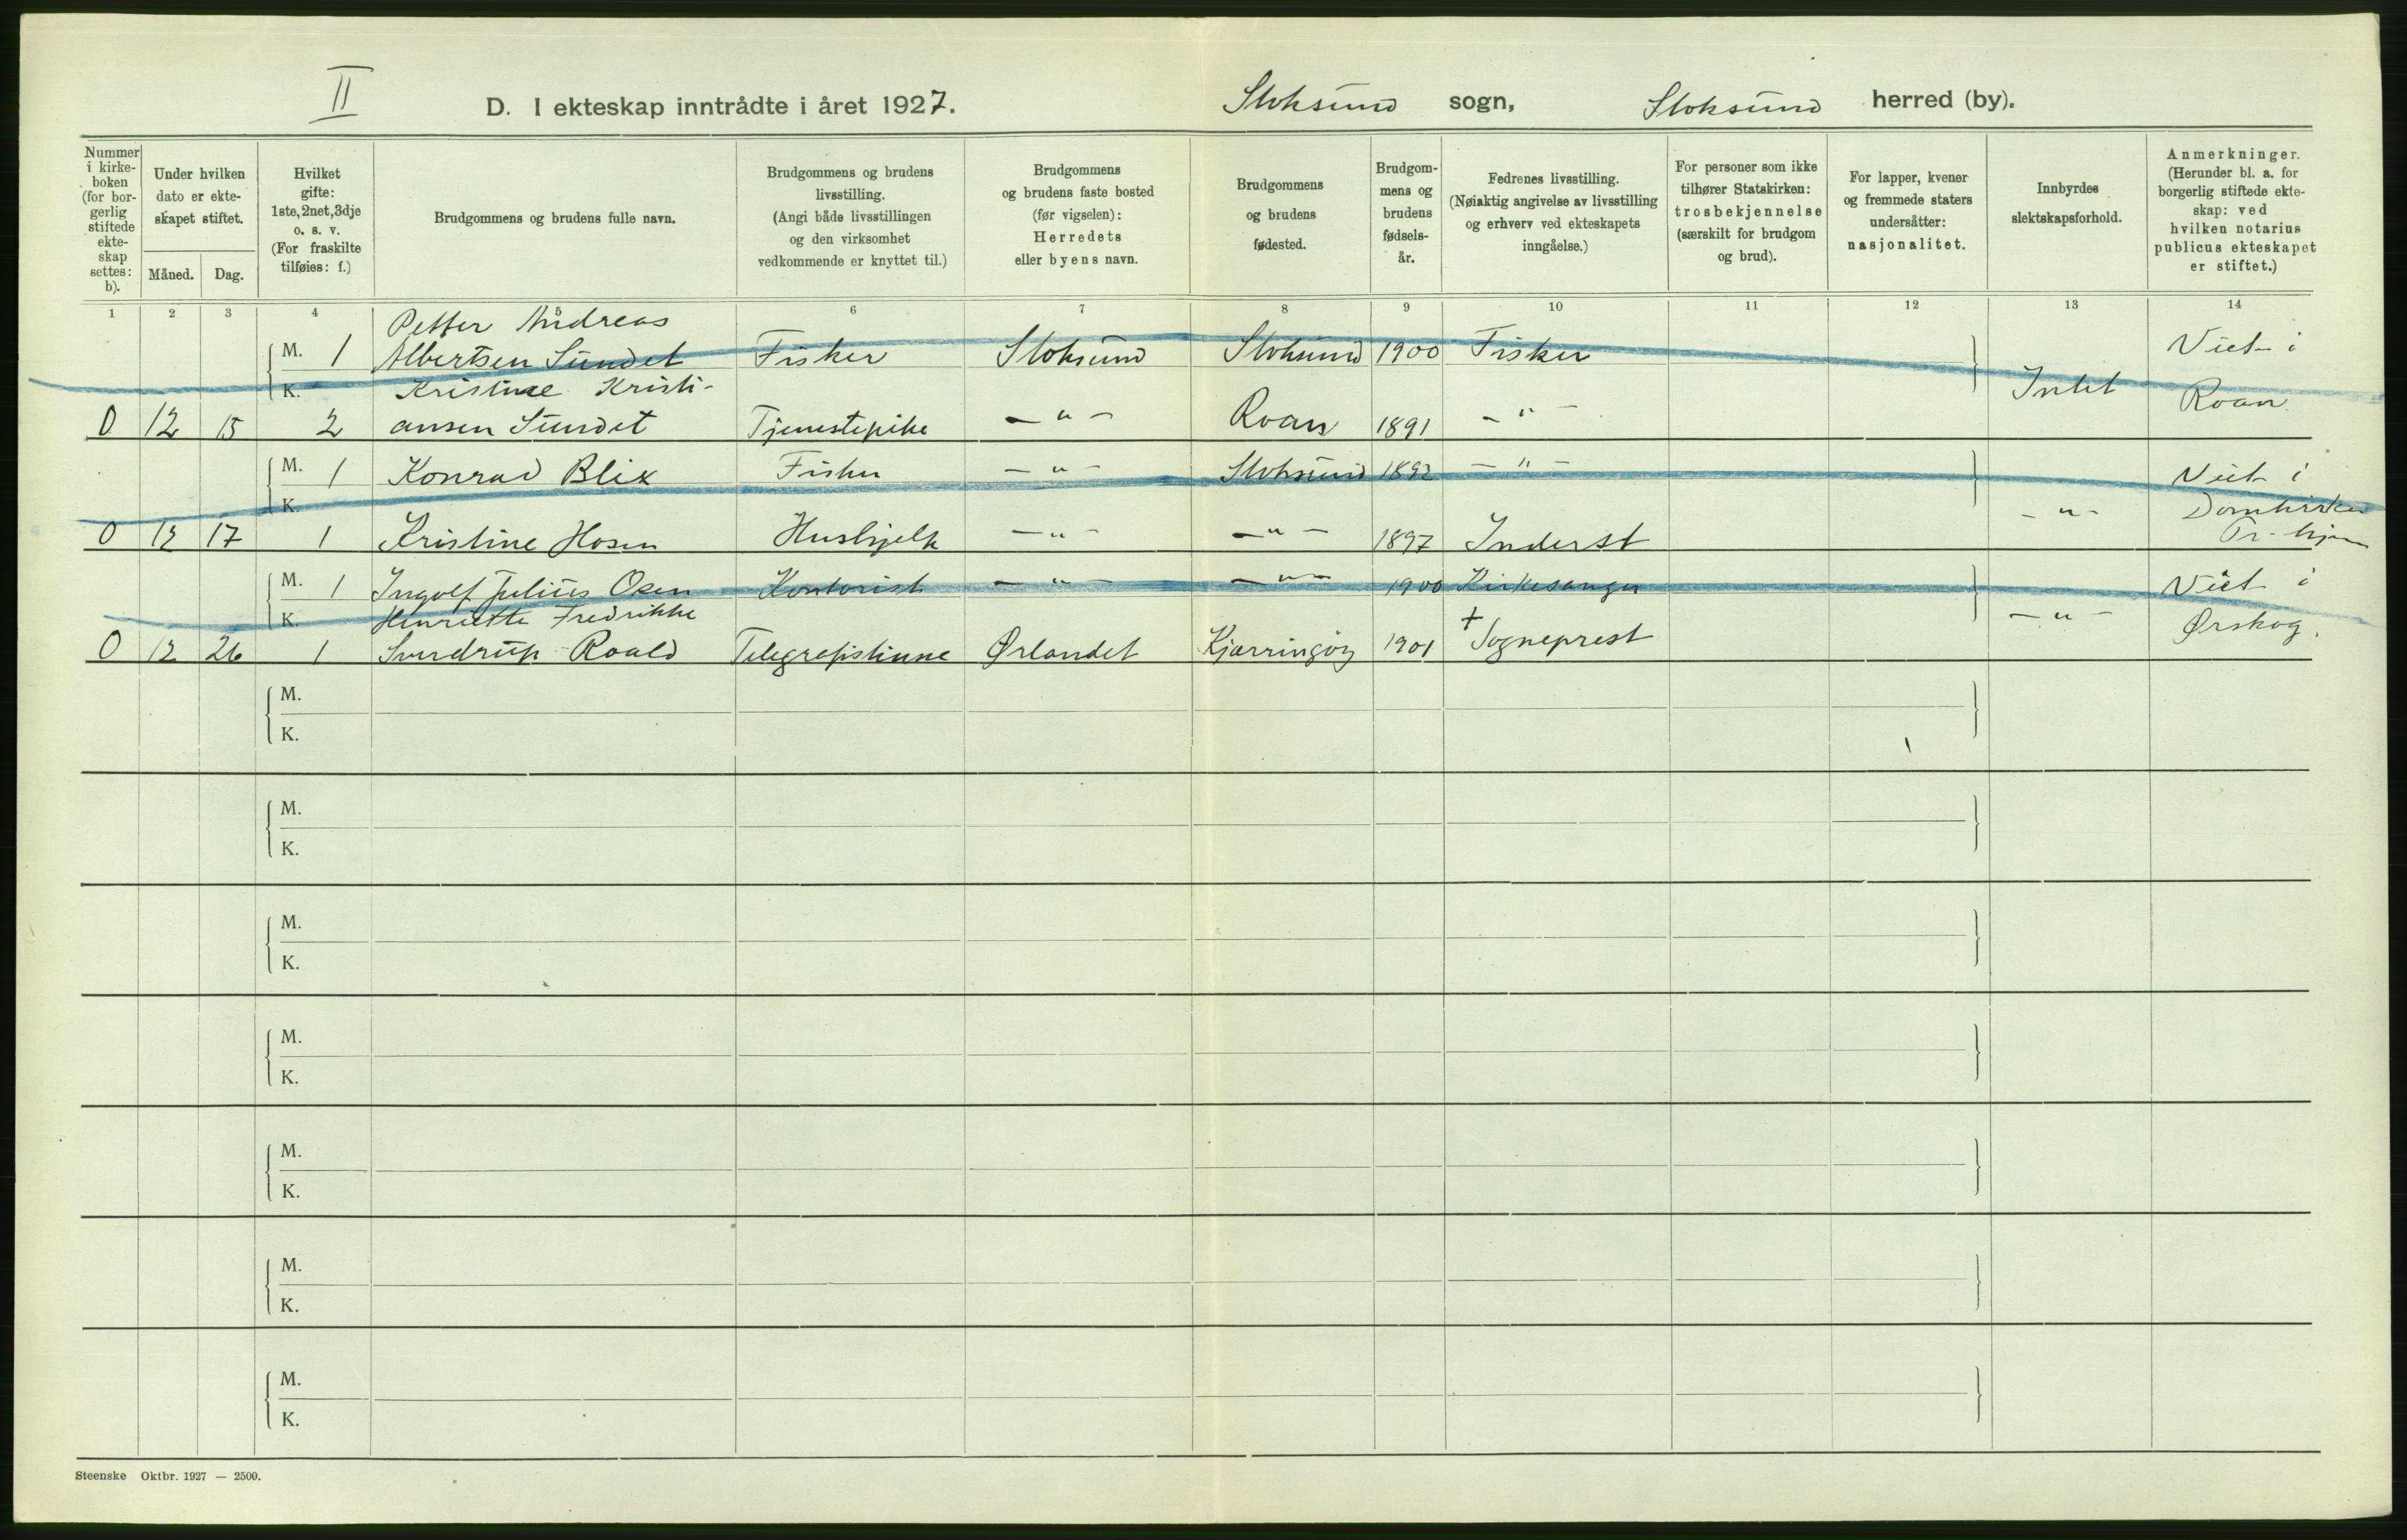 II
D. I ekteskap inntrådte i året 1927. Stoksund sogn, Stoksund herred (by).
Nummer i kirke-boken (for bor-gerlig stiftede ekte-skap settes: b).
Under hvilken dato er ekte-skapet stiftet.
Måned. Dag.
Hvilket gifte: 1ste, 2net, 3dje o. s. v. (For fraskilte tilføies: f.)
Brudgommens og brudens fulle navn.
Brudgommens og brudens livsstilling. (Angi både livsstillingen og den virksomhet vedkommende er knyttet til.)
Brudgommens og brudens faste bosted (før vigselen): Herredets eller byens navn.
Brudgommens og brudens fødested.
Brudgom-mens og brudens fødsels-år.
Fedrenes livsstilling. (Nøiaktig angivelse av livsstilling og erhverv ved ekteskapets inngåelse.)
For personer som ikke tilhører Statskirken: trosbekjennelse (særskilt for brudgom og brud).
For lapper, kvener og fremmede staters undersåtter: nasjonalitet.
Innbyrdes slektskapsforhold.
Anmerkninger. (Herunder bl. a. for borgerlig stiftede ekte-skap: ved hvilken notarius publicus ekteskapet er stiftet.)
1 2 3 4 6 7 8 9 10 11 12 13 14
Petter Andreas
M. 1 Albertsen Sundet Fisker Stoksund Stoksund 1900 Fisker Viet i
K. Kristine Kristi- Intet Roan
0 12 15 2 ansen Sundet Tjenestepike - " - Roan 1891 - " -
M. 1 Konrad Blix Fisker - " - Stoksund 1892 - " - Viet i
K. - " - Domkirken
0 12 17 1 Kristine Hosen Hushjelp - " - - " - 1897 Inderst Tr.hjem
M. 1 Ingolf Julius Osen Kontorist - " - - " - 1900 Kirkesanger Viet i
K. Henriette Fredrikke + - " - Ørskog.
0 12 26 1 Sverdrup Roald Telegrafistinne Ørlandet Kjærringøy 1901 Sogneprest
M.
K.
M.
K.
M.
K.
M.
K.
M.
K.
M.
K.
M.
K.
Steenske Oktbr. 1927 — 2500.